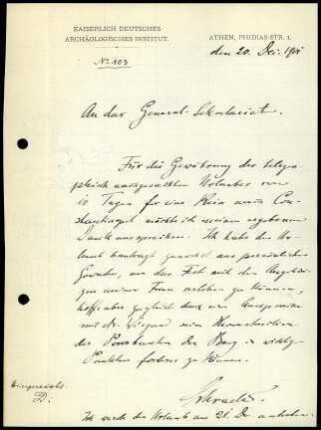 KAISERLICH DEUTSCHES
ARCHÄOLOGISCHES INSTITUT.
ATHEN, PHIDIAS-STR. 1.
den 20. Dez. 190
No 103
An das General-Sekretariat.
Für die Gewährung des telegra-
phisch nachgesuchten Urlaubes von
10 Tagen für eine Reise nach Con-
stantinopel möchte ich meinen ergebenen
Dank aussprechen. Ich habe den Ur-
laub beantragt zunächst aus persönlichen
Gründen, um das Fest mit den Angehöri-
gen meiner Frau verleben zu können,
hoffe aber zugleich durch eine Aussprache
mit Dr. Wiegand mein Manuskript
der in wichtigen
Punkten fördern zu können.
Schrader
Ich werde den Urlaub am 21. Dez. antreten.